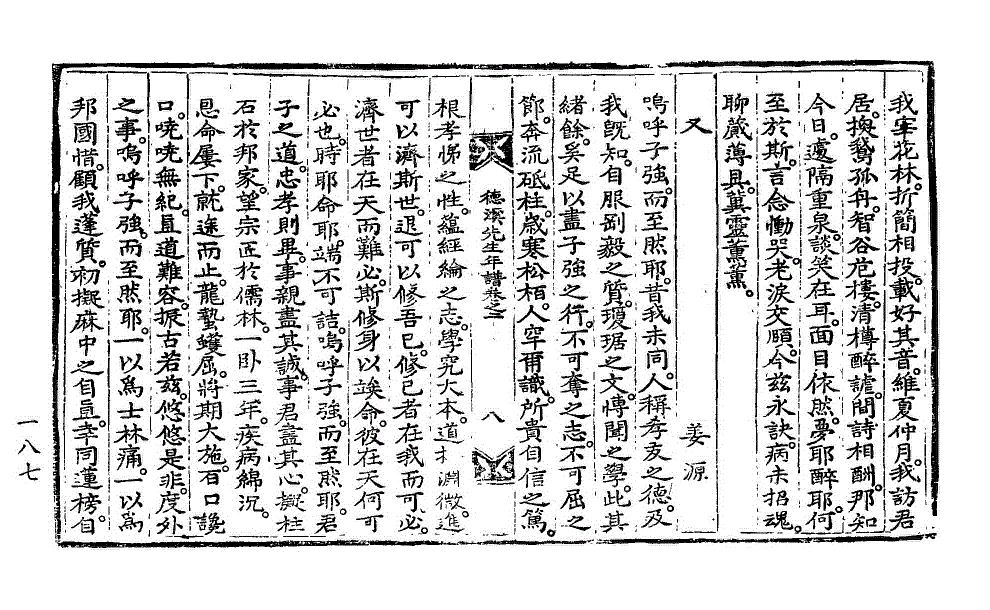 我宰花林折簡相投載好其音維夏仲月我訪君
居換鵝孤舟智谷危樓清樽醉謔間詩相酬那知
今日遽隔重泉談笑在耳面目依然夢耶醉耶何
至於斯言念慟哭老淚交頤今玆永訣病未招魂
聊蕆薄具冀靈薰薰
又
姜源
嗚呼子強而至然耶昔我未同人稱孝友之德及
我旣知自服剛毅之質瓊琚之文博聞之學此其
緖餘奚足以盡子強之行不可奪之志不可屈之
節奔流砥柱歲寒松栢人罕爾識所貴自信之篤
德溪先生年譜卷之二
八
根孝悌之性蘊經綸之志學究大本道 淵微進
可以濟斯世退可以修吾己修己者在我而可必
濟世者在天而難必斯修身以竢命彼在天何可
必也時耶命耶端不可詰嗚呼子強而至然耶君
子之道忠孝則畢事親盡其誠事君盡其心擬柱
石於邦家望宗匠於儒林一卧三年疾病綿沉
恩命屢下就途而止龍蟄蠖屈將期大施百口讒
口嘵嘵無紀直道難容振古若玆悠悠是非度外
之事嗚呼子強而至然耶一以爲士林痛一以爲
邦國惜顧我蓬質初擬麻中之自直幸同蓮榜自
一八七